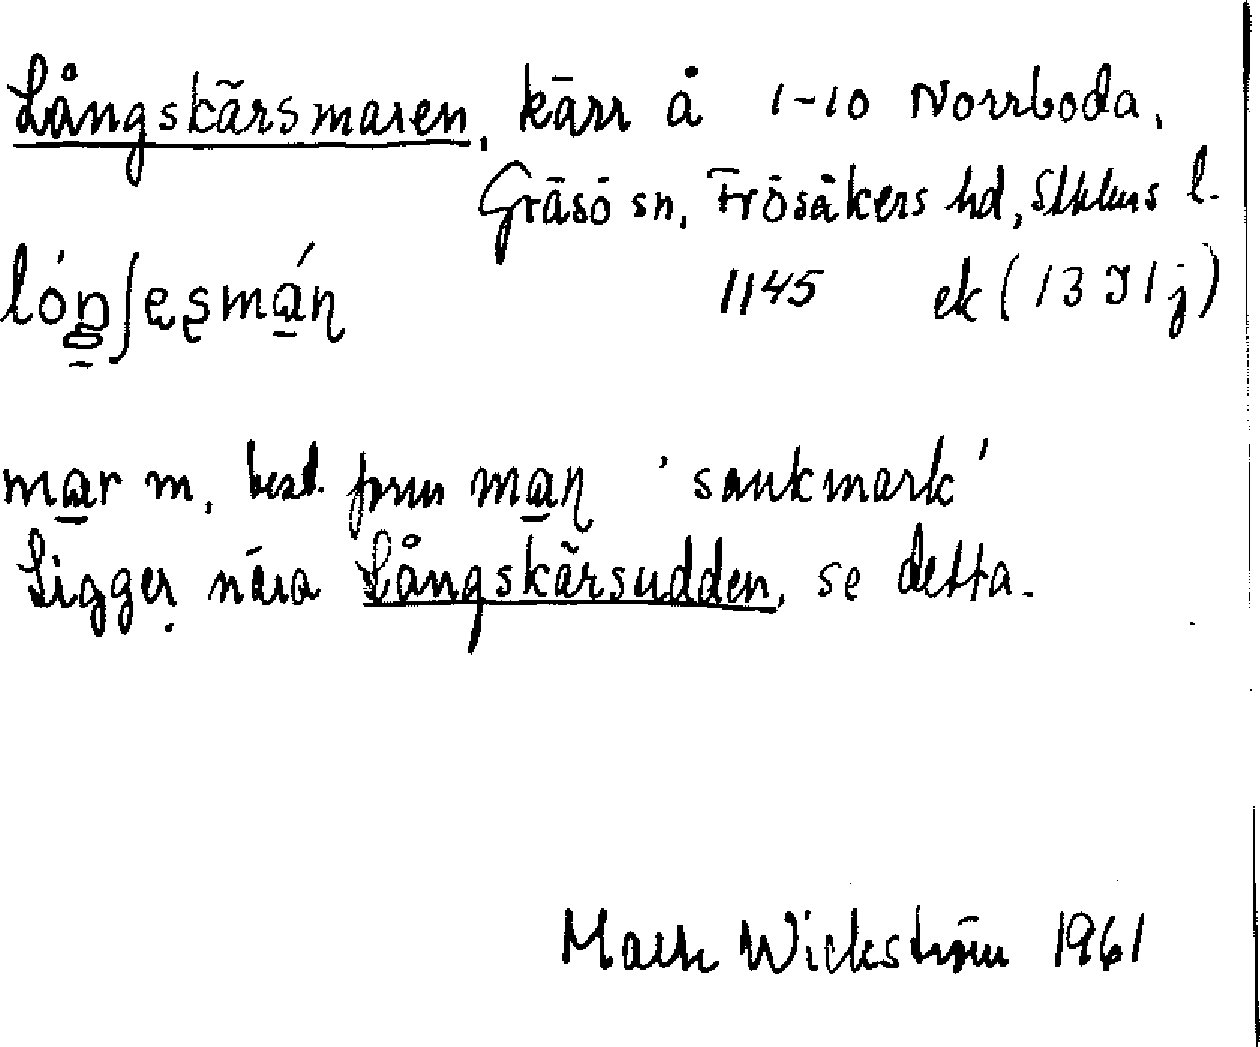 Långskärsmaren, kärr å 1-10 Norrboda,
Gräsö sn, Frösåkers hd, Sthlms l.
1145 ek (13 I 1 j)
mar m, best. form man 'sankmark'
Ligger nära Långskärsudden, se detta.
Wickström 1961